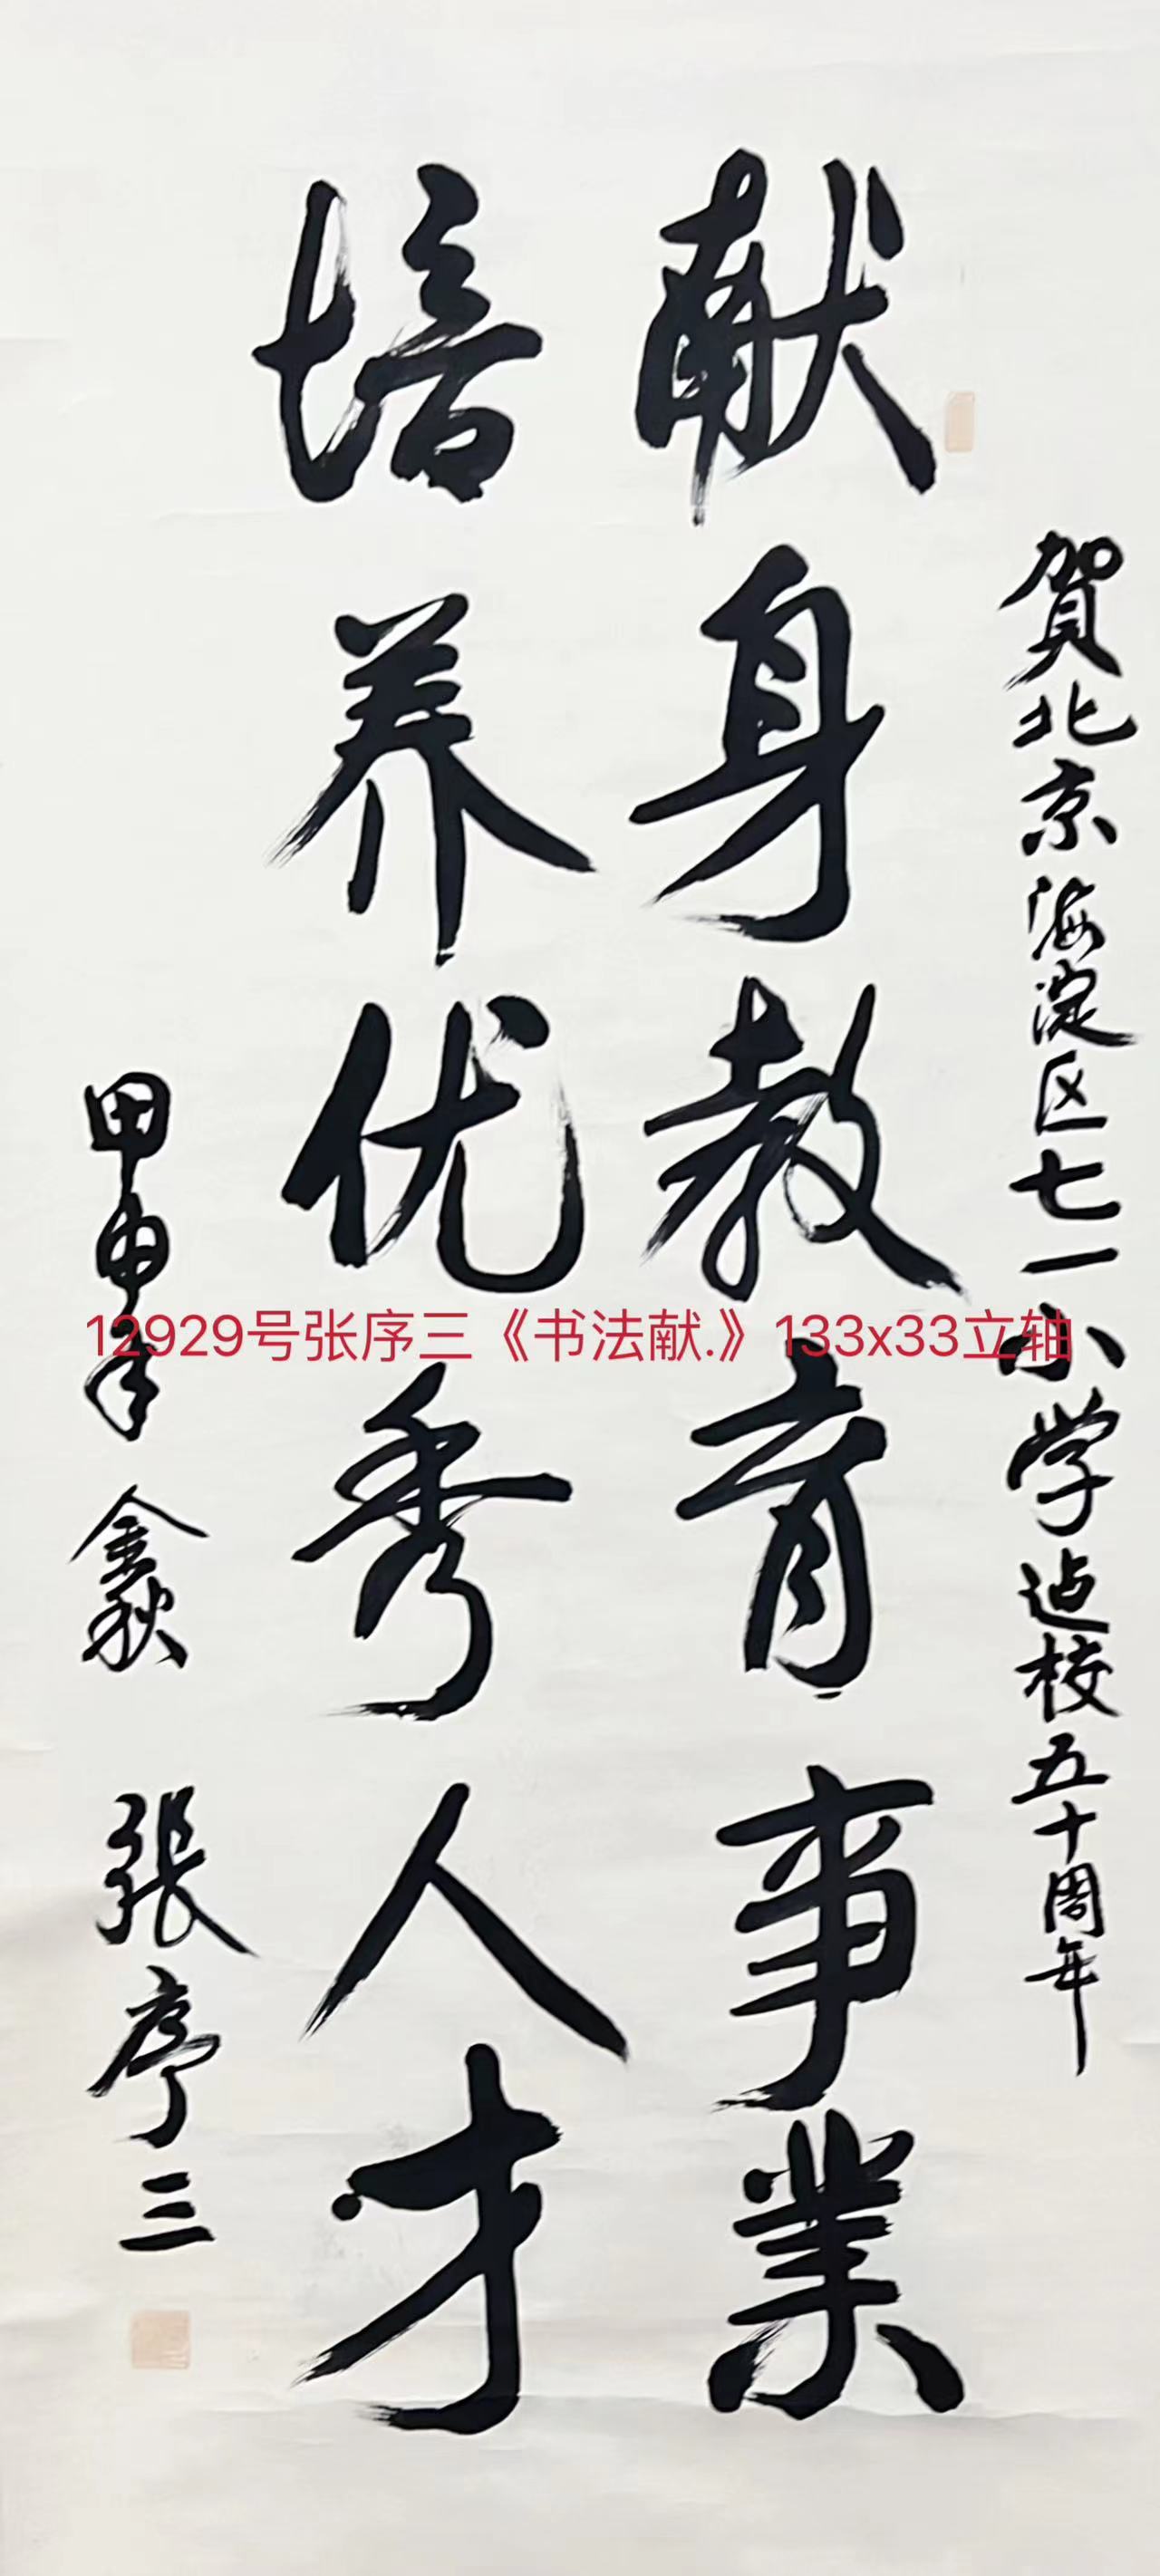 贺北京海淀区七一小学建校五十周年
献身教育事業
培养优秀人才
甲申年金秋 張序三
12929号张序三《书法献.》133x33立轴